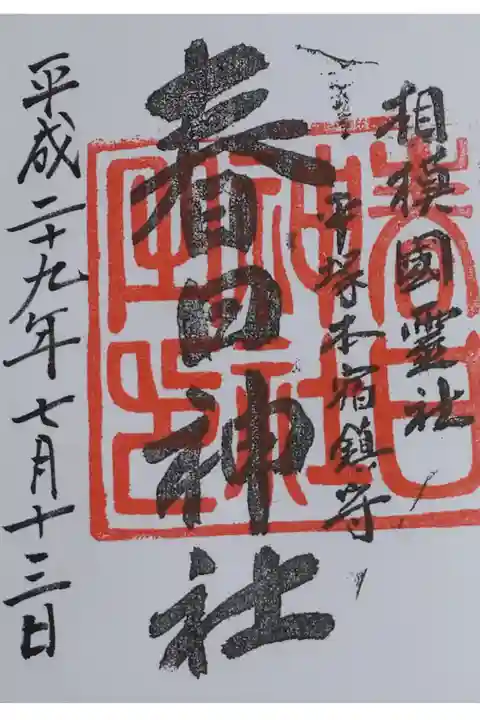 相模國霊社
平塚本宿鎮守
春日神社
平成二十九年七月十三日